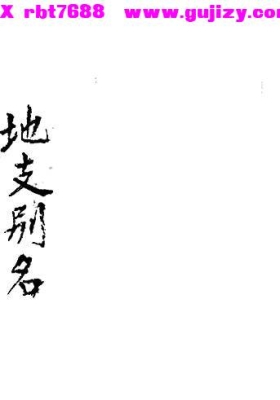 X rbt7688 www.gujizy.com
地支别名